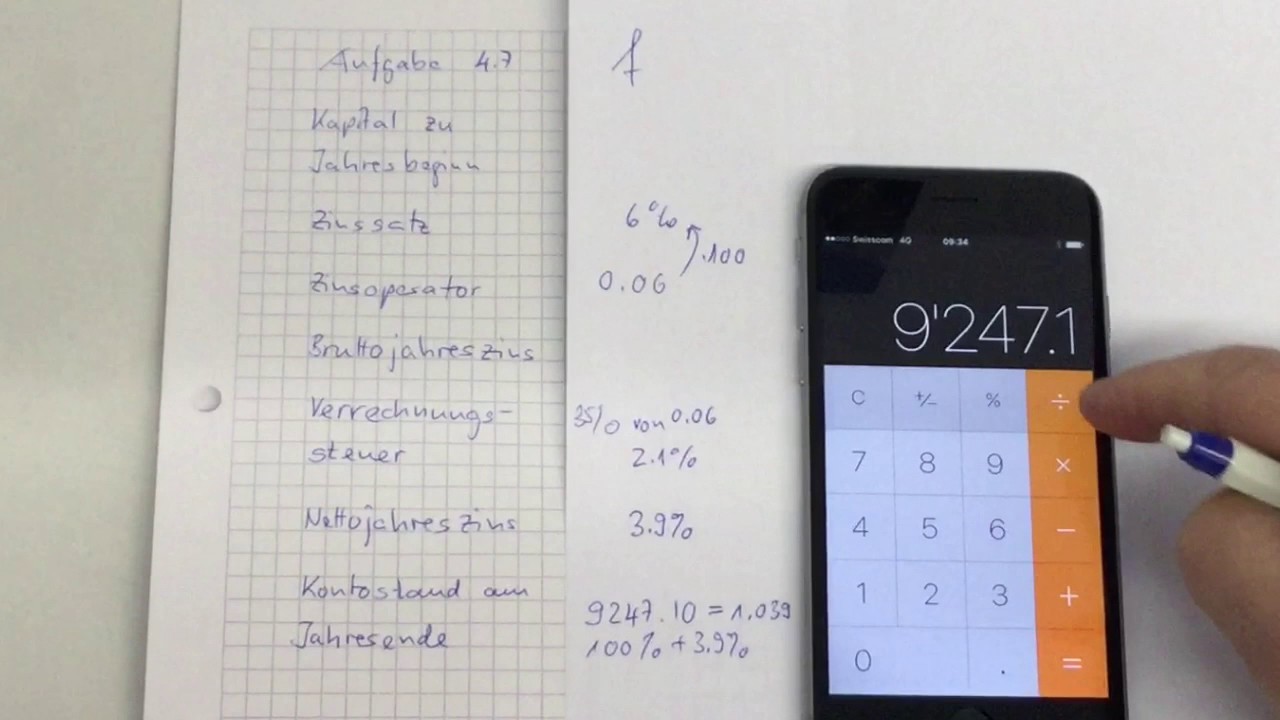 Aufgabe 4.7
f
Kapital zu
Jahresbeginn
Zinssatz
6%
.100
Zinsoperator
0.06
Bruttojahreszins
Verrechnungs-
steuer
35% von 0.06
2.1%
Nettojahreszins
3.9%
Kontostand am
Jahresende
9247.10 = 1.039
100% + 3.9%
Swisscom 4G 09:34
9'247.1
C +/- % ÷
7 8 9 ×
4 5 6 −
1 2 3 +
0 . =